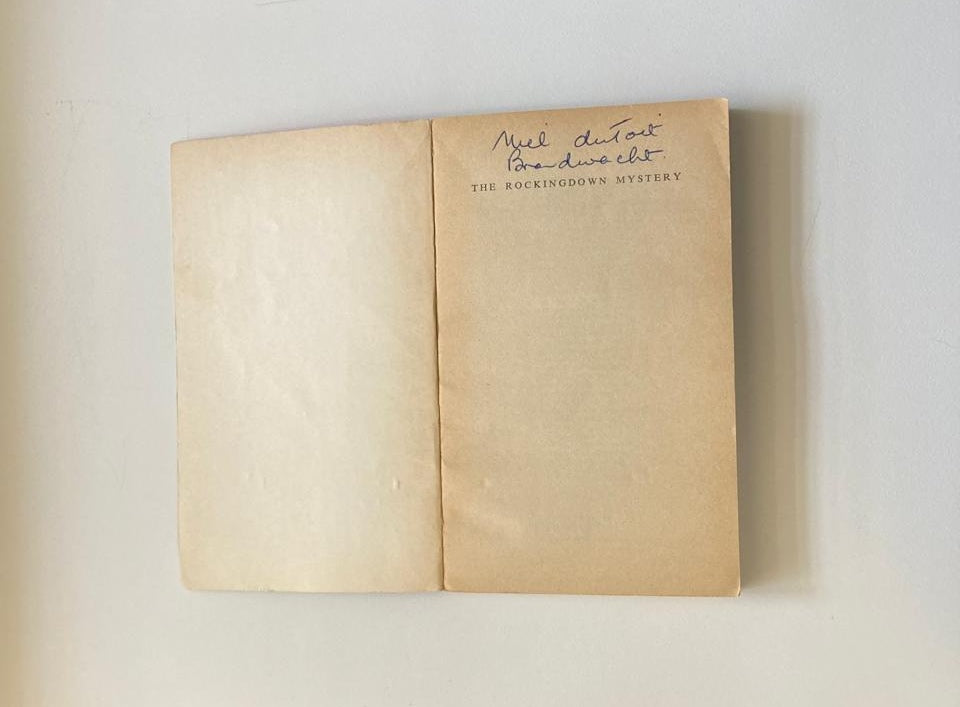 Miel duToit
Brandwacht.
THE ROCKINGDOWN MYSTERY